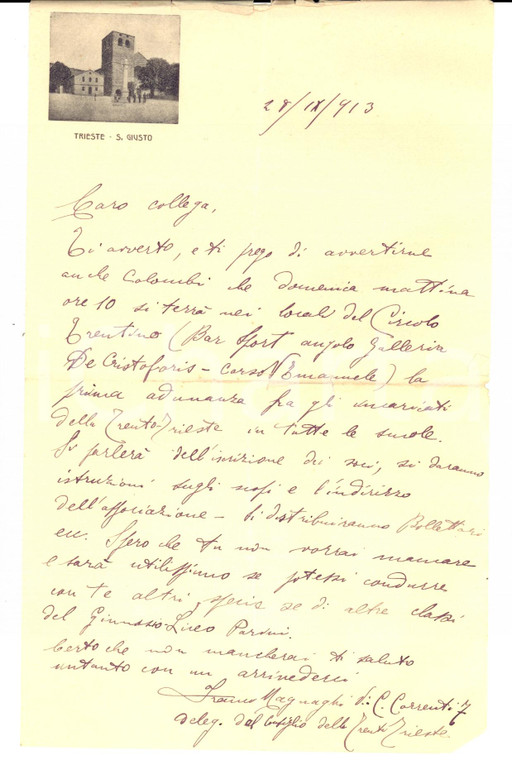 TRIESTE - S. GIUSTO
28/IX/913
Caro collega,
Ti avverto, e ti prego di avvertirne
anche Colombi che domenica mattina
ore 10 si terrà nei locali del Circolo
Trentino (Bar Sport angolo Galleria
De Cristoforis - Corso V. Emanuele) la
prima adunanza fra gli incaricati
della Trento-Trieste in tutte le scuole.
Si parlerà dell'iscrizione dei soci, si daranno
istruzioni sugli scopi e l'indirizzo
dell'associazione - Si distribuiranno Bollettari
ecc. Spero che tu non vorrai mancare
e sarà utilissimo se potessi condurre
con te altri, specie se di altre classi
del Ginnasio-Liceo Parini.
Certo che non mancherai ti saluto
intanto con un arrivederci
Franco Magnaghi Via C. Correnti 7
deleg. del Consiglio della Trento Trieste.